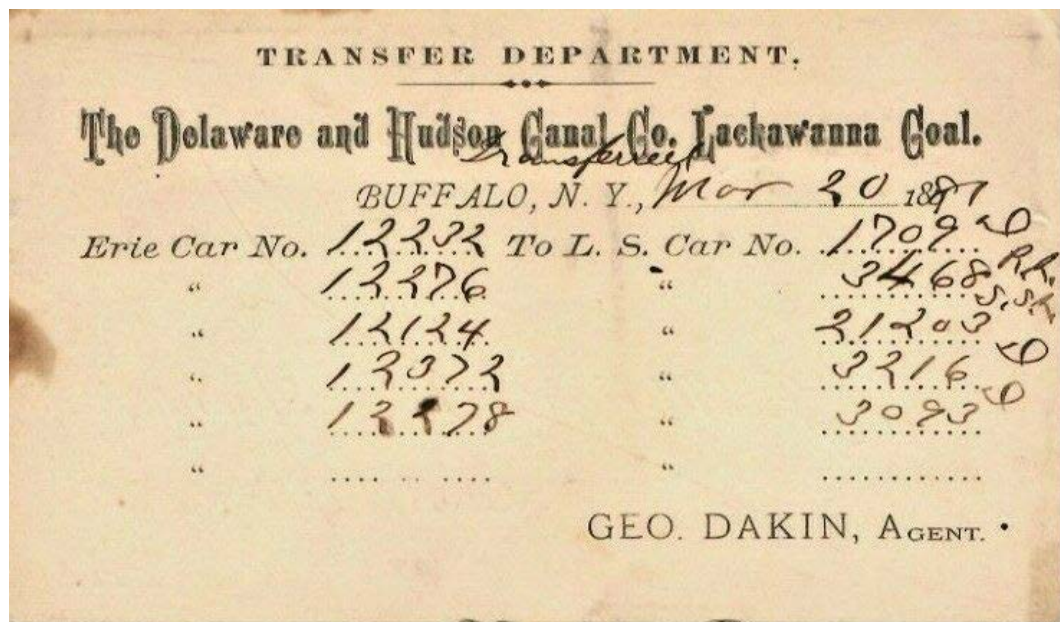 TRANSFER DEPARTMENT.
The Delaware and Hudson Canal Co. Lackawanna Coal.
Transferred
BUFFALO, N. Y., Mar 20 1887
Erie Car No. 12232 To L. S. Car No. 1709 D
" 12276 " 3468 R.R.
" 12124 " 21203 S.S.R.
" 12372 " 3216 D
" 12278 " 3093 D
" "
GEO. DAKIN, AGENT.